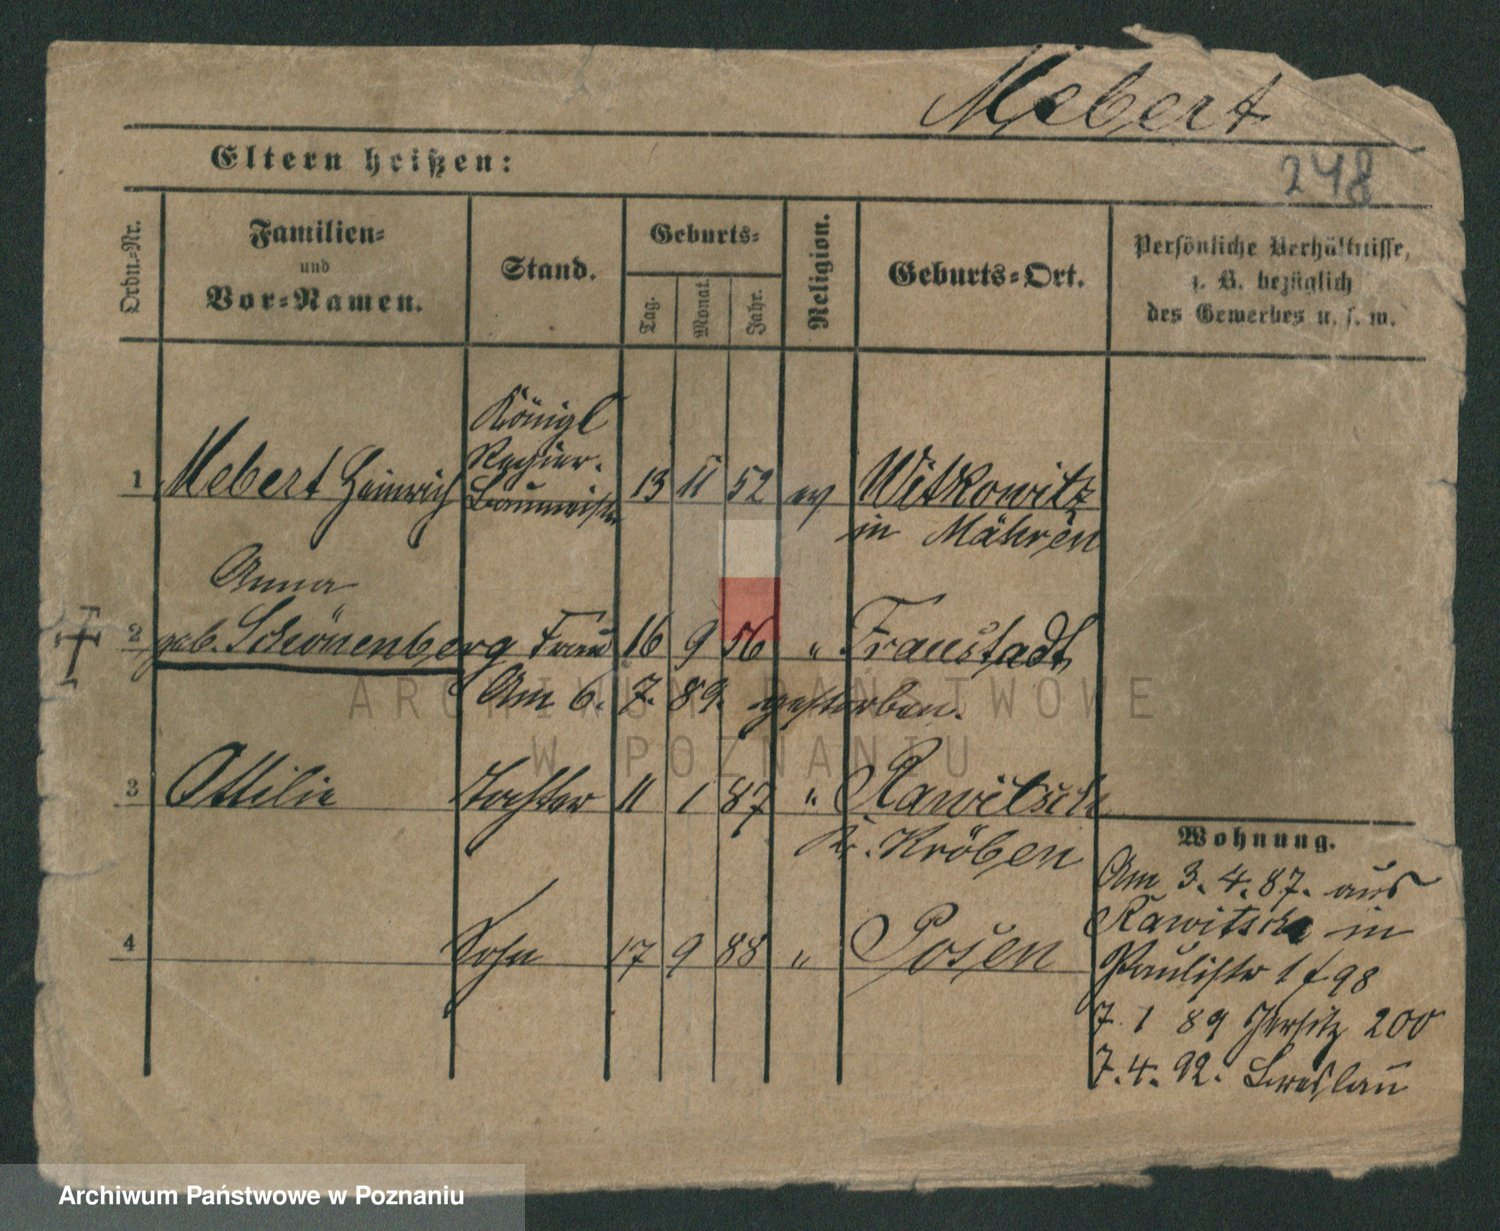 Mebert
Eltern heißen:
248
Ordn.-Nr.
Familien-
und
Vor-Namen.
Stand.
Geburts-
Tag.
Monat.
Jahr.
Religion.
Geburts-Ort.
Persönliche Verhältnisse,
z. B. bezüglich
des Gewerbes u. s. w.
Königl
Regier.
1 Mebert Heinrich Baumeister 13 11 52 ev Witkowitz
in Mähren
Anna
2 geb. Schönenberg Frau 16 9 56 " Fraustadt
Am 6. 7. 89. gestorben.
3 Ottilie Tochter 11 1 87 " Rawitsch
Kr. Kröben
4 Sohn 17 9 88 " Posen
Wohnung.
Am 3. 4. 87. aus
Rawitsch in
Paulistr 1 f 98
7. 1 89 Jersitz 200
7. 4. 92. Breslau
ARCHIWUM PAŃSTWOWE
W POZNANIU
Archiwum Państwowe w Poznaniu